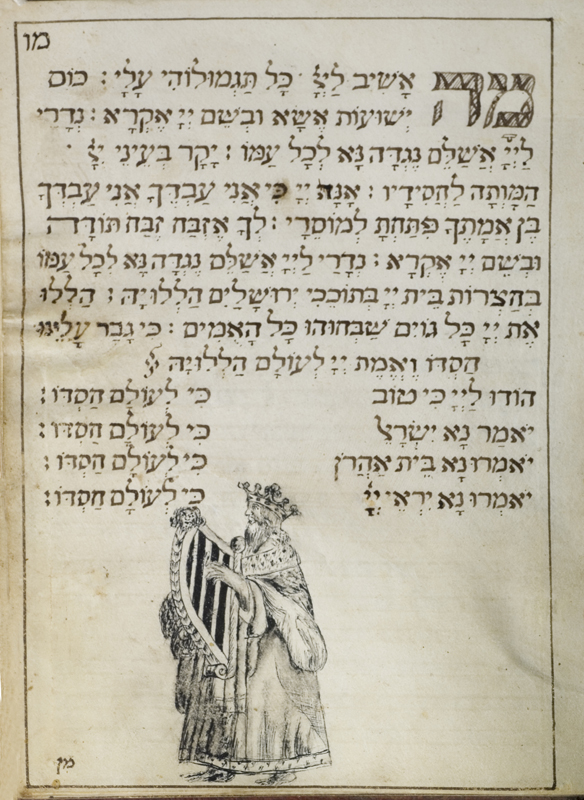 מו
מה אשיב ליְיָ כָּל תַּגְמוּלוֹהִי עָלָי : כוֹס
יְשׁוּעוֹת אֶשָּׂא וּבְשֵׁם יְיָ אֶקְרָא : נְדָרַי
לַיְיָ אֲשַׁלֵּם נֶגְדָּה נָּא לְכָל עַמּוֹ : יָקָר בְּעֵינֵי יְיָ
הַמָּוְתָה לַחֲסִידָיו : אָנָּה יְיָ כִּי אֲנִי עַבְדֶּךָ אֲנִי עַבְדְּךָ
בֶּן אֲמָתֶךָ פִּתַּחְתָּ לְמוֹסֵרָי : לְךָ אֶזְבַּח זֶבַח תּוֹדָה
וּבְשֵׁם יְיָ אֶקְרָא : נְדָרַי לַיְיָ אֲשַׁלֵּם נֶגְדָּה נָּא לְכָל עַמּוֹ
בְּחַצְרוֹת בֵּית יְיָ בְּתוֹכֵכִי יְרוּשָׁלַיִם הַלְלוּיָהּ : הַלְלוּ
אֶת יְיָ כָּל גּוֹיִם שַׁבְּחוּהוּ כָּל הָאֻמִּים : כִּי גָבַר עָלֵינוּ
חַסְדּוֹ וֶאֱמֶת יְיָ לְעוֹלָם הַלְלוּיָהּ
הוֹדוּ לַיְיָ כִּי טוֹב כִּי לְעוֹלָם חַסְדּוֹ :
יֹאמַר נָא יִשְׂרָאֵל כִּי לְעוֹלָם חַסְדּוֹ :
יֹאמְרוּ נָא בֵית אַהֲרֹן כִּי לְעוֹלָם חַסְדּוֹ :
יֹאמְרוּ נָא יִרְאֵי יְיָ כִּי לְעוֹלָם חַסְדּוֹ :